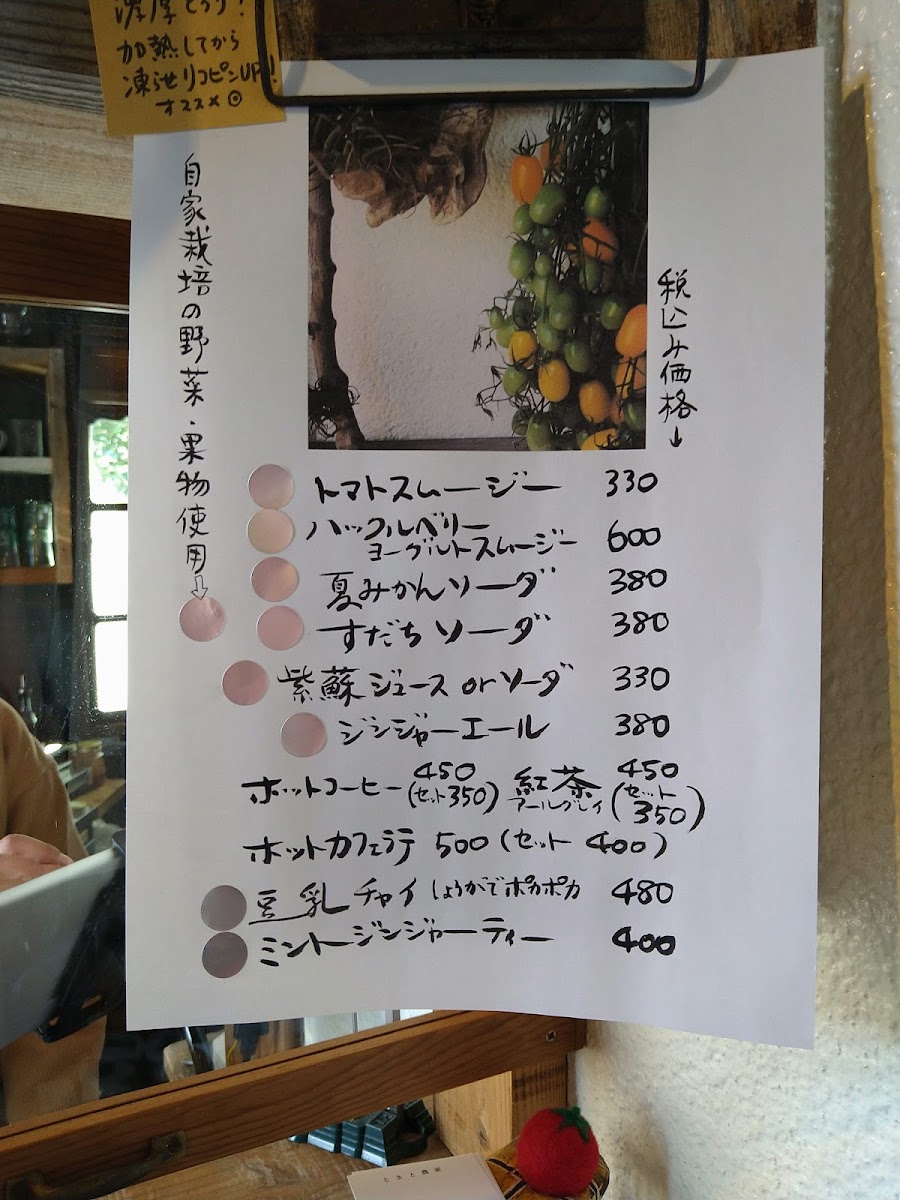 濃厚とろり!
加熱してから
凍らせリコピンUP!
ススメ◎
自家栽培の野菜・果物使用⇩
税込み価格↓
トマトスムージー 330
ハックルベリー
ヨーグルトスムージー 600
夏みかんソーダ 380
すだちソーダ 380
紫蘇ジュース orソーダ 330
ジンジャーエール 380
ホットコーヒー 450 (セット350) 紅茶 アールグレイ 450 (セット 350)
ホットカフェラテ 500 (セット 400)
豆乳チャイ しょうがでポカポカ 480
ミントージンジャーティー 400
ときと農家